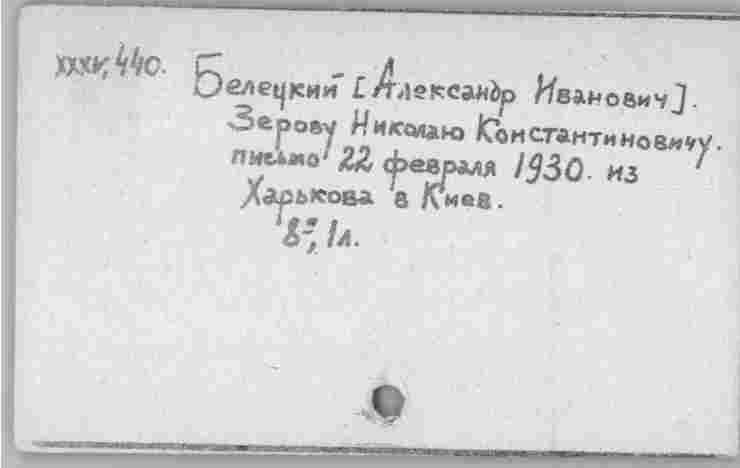 XXXV, 440. Белецкий [Александр Иванович].
Зерову Николаю Константиновичу.
письмо 22 февраля 1930. из
Харькова в Киев.
8º, 1л.